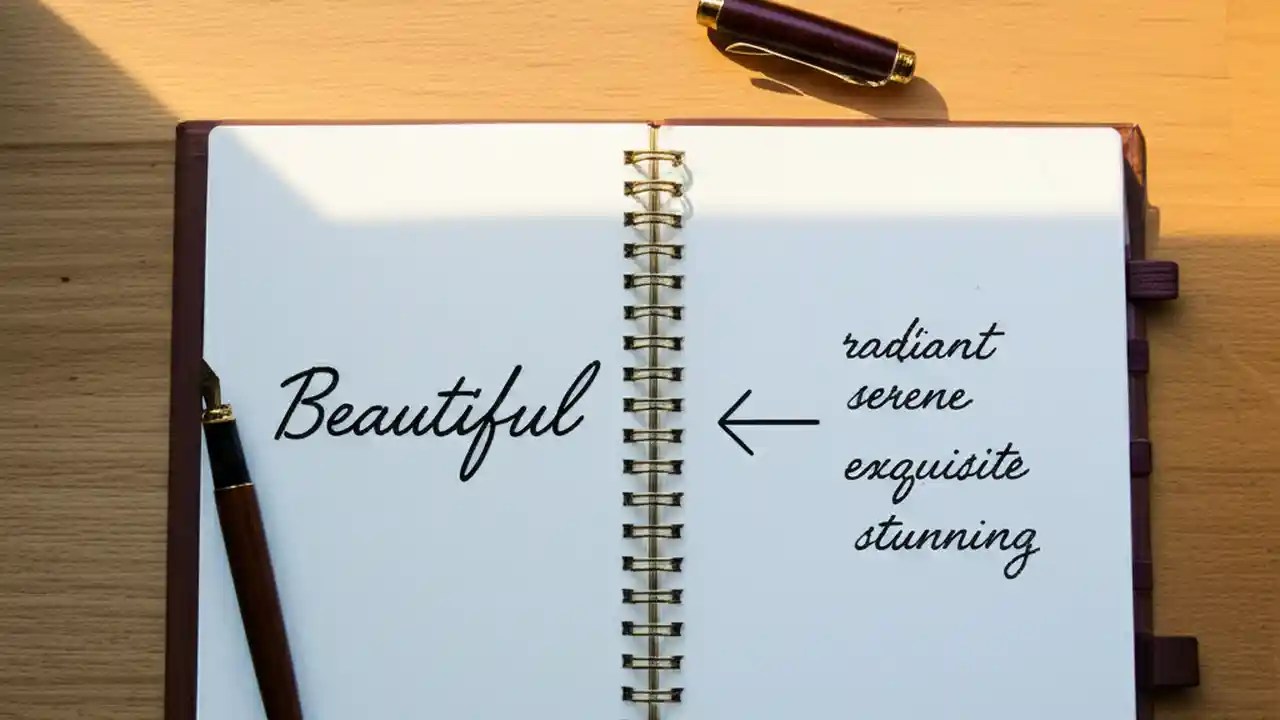 Beautiful
radiant
serene
exquisite
stunning